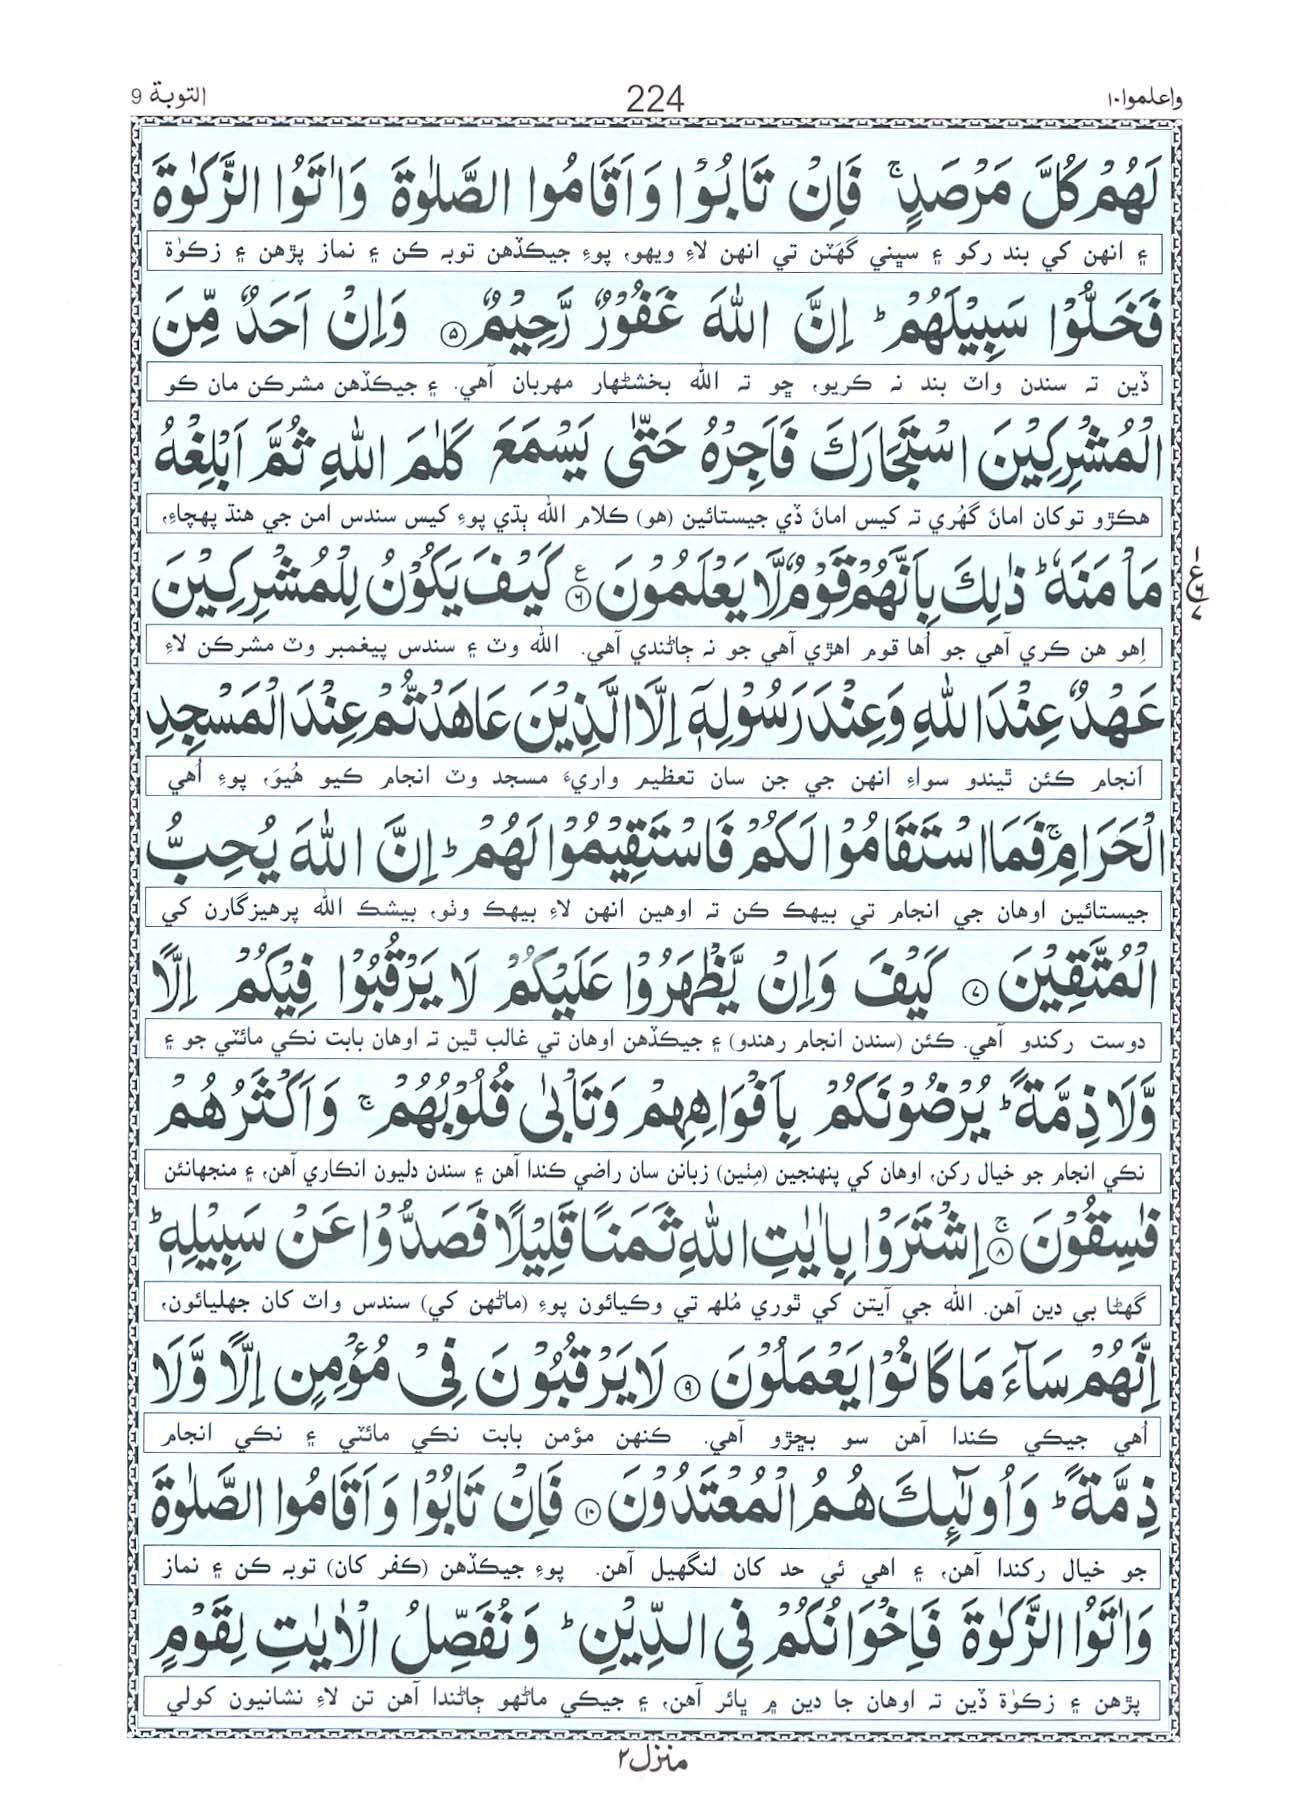 واعلموا١٠ 224 التوبة 9
لَهُمْ كُلَّ مَرْصَدٍ ۚ فَاِنْ تَابُوْا وَاَقَامُوا الصَّلٰوةَ وَاٰتَوُا الزَّكٰوةَ
۽ انهن کي بند رکو ۽ سڀني گهَٽن تي انهن لاءِ ويهو، پوءِ جيڪڏهن توبہ ڪن ۽ نماز پڙهن ۽ زڪوٰة
فَخَلُّوْا سَبِيْلَهُمْ ؕ اِنَّ اللّٰهَ غَفُوْرٌ رَّحِيْمٌ ۝۵ وَاِنْ اَحَدٌ مِّنَ
ڏين تہ سندن واٽ بند نہ ڪريو، ڇو تہ الله بخشڻهار مهربان آهي. ۽ جيڪڏهن مشرڪن مان ڪو
الْمُشْرِكِيْنَ اسْتَجَارَكَ فَاَجِرْهُ حَتّٰى يَسْمَعَ كَلٰمَ اللّٰهِ ثُمَّ اَبْلِغْهُ
هڪڙو توکان امانَ گهُري تہ کيس امانَ ڏي جيستائين (هو) ڪلام الله ٻڌي پوءِ کيس سندس امن جي هنڌ پهچاءِ،
مَاْمَنَهٗ ؕ ذٰلِكَ بِاَنَّهُمْ قَوْمٌ لَّا يَعْلَمُوْنَ ۝۶ ع كَيْفَ يَكُوْنُ لِلْمُشْرِكِيْنَ
اِهو هن ڪري آهي جو اُها قوم اهڙي آهي جو نہ ڄاڻندي آهي. الله وٽ ۽ سندس پيغمبر وٽ مشرڪن لاءِ
عَهْدٌ عِنْدَ اللّٰهِ وَعِنْدَ رَسُوْلِهٖٓ اِلَّا الَّذِيْنَ عَاهَدْتُّمْ عِنْدَ الْمَسْجِدِ
اَنجام ڪئن ٿيندو سواءِ انهن جي جن سان تعظيم واريءَ مسجد وٽ انجام ڪيو هُيوَ، پوءِ اُهي
الْحَرَامِ ۚ فَمَا اسْتَقَامُوْا لَكُمْ فَاسْتَقِيْمُوْا لَهُمْ ؕ اِنَّ اللّٰهَ يُحِبُّ
جيستائين اوهان جي انجام تي بيهڪ ڪن تہ اوهين انهن لاءِ بيهڪ وٺو، بيشڪ الله پرهيزگارن کي
الْمُتَّقِيْنَ ۝۷ كَيْفَ وَاِنْ يَّظْهَرُوْا عَلَيْكُمْ لَا يَرْقُبُوْا فِيْكُمْ اِلًّا
دوست رکندو آهي. ڪئن (سندن انجام رهندو) ۽ جيڪڏهن اوهان تي غالب ٿين تہ اوهان بابت نڪي مائٽي جو ۽
وَّلَا ذِمَّةً ؕ يُرْضُوْنَكُمْ بِاَفْوَاهِهِمْ وَتَاْبٰى قُلُوْبُهُمْ ۚ وَاَكْثَرُهُمْ
نڪي انجام جو خيال رکن، اوهان کي پنهنجين (مِٺين) زبانن سان راضي ڪندا آهن ۽ سندن دليون انڪاري آهن، ۽ منجهانئن
فٰسِقُوْنَ ۝۸ ۚ اِشْتَرَوْا بِاٰيٰتِ اللّٰهِ ثَمَنًا قَلِيْلًا فَصَدُّوْا عَنْ سَبِيْلِهٖ ؕ
گهڻا بي دين آهن. الله جي آيتن کي ٿوري مُلهہ تي وڪيائون پوءِ (ماڻهن کي) سندس واٽ کان جهليائون،
اِنَّهُمْ سَآءَ مَا كَانُوْا يَعْمَلُوْنَ ۝۹ لَا يَرْقُبُوْنَ فِيْ مُؤْمِنٍ اِلًّا وَّلَا
اُهي جيڪي ڪندا آهن سو بڇڙو آهي. ڪنهن مؤمن بابت نڪي مائٽي ۽ نڪي انجام
ذِمَّةً ؕ وَاُولٰٓئِكَ هُمُ الْمُعْتَدُوْنَ ۝۱۰ فَاِنْ تَابُوْا وَاَقَامُوا الصَّلٰوةَ
جو خيال رکندا آهن، ۽ اهي ئي حد کان لنگهيل آهن. پوءِ جيڪڏهن (ڪفر کان) توبہ ڪن ۽ نماز
وَاٰتَوُا الزَّكٰوةَ فَاِخْوَانُكُمْ فِي الدِّيْنِ ؕ وَنُفَصِّلُ الْاٰيٰتِ لِقَوْمٍ
پڙهن ۽ زڪوٰة ڏين تہ اوهان جا دين ۾ ڀائر آهن، ۽ جيڪي ماڻهو ڄاڻندا آهن تن لاءِ نشانيون کولي
منزل٢